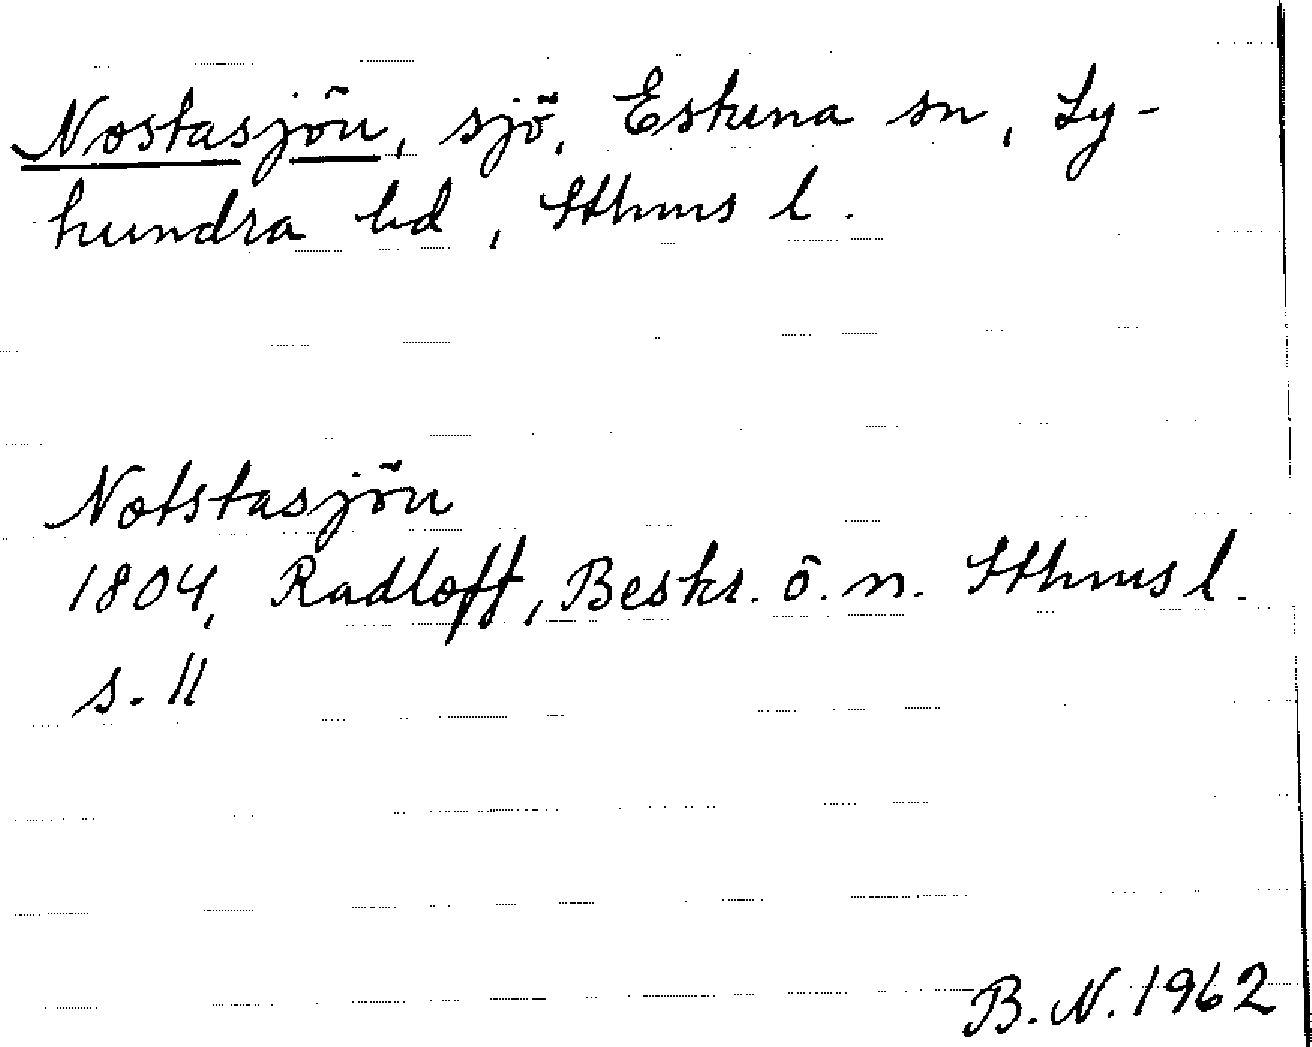 Nostasjön, sjö, Estuna sn, Ly-
hundra hd, Sthms l.
Notstasjön
1804, Radloff, Beskr. ö. n. Sthms l.
s. 11
B. N. 1962